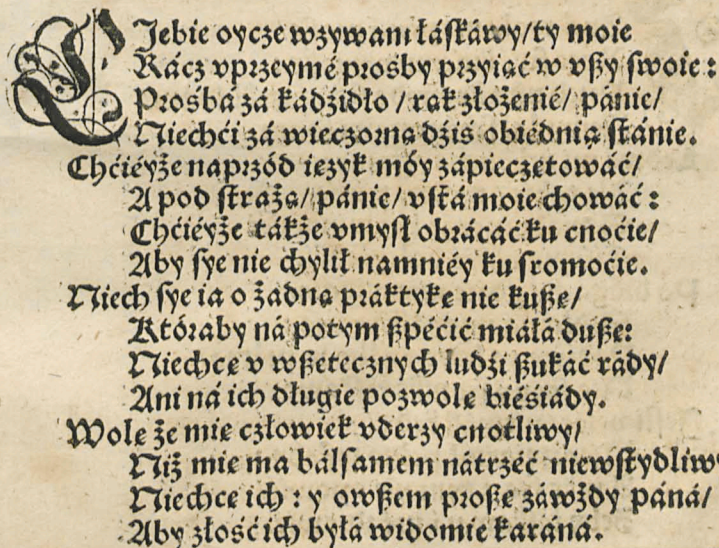 CIebie oycze wzywam łáſkáwy/ty moie
Rácz vprzeymé prośby przyiąć w vſzy ſwoie:
Prośbá zá kádźidło / rąk złożenié/ pánie/
Niech ći zá wieczorną dźiś obiédnią ſtánie.
Chćiéyże naprzód ięzyk móy zápieczętowáć/
A pod ſtrażą/ pánie/ vſtá moie chowáć:
Chćiéyże tákże vmyſł obrácáć ku cnoćie/
Aby ſye nie chylił namniéy ku ſromoćie.
Niech ſye ia o żadną práktykę nie kuſzę/
Któraby ná potym ſzpéćić miáłá duſzę:
Niechcę v wſzetecznych ludźi ſzukáć rády/
Ani ná ich długie pozwolę biéśiády.
Wolę że mię człowiek vderzy cnotliwy/
Niż mię ma bálſamem nátrzéć niewſtydliwy
Niechcę ich : y owſzem proſzę záwżdy páná/
Aby złość ich byłá widomie karána.